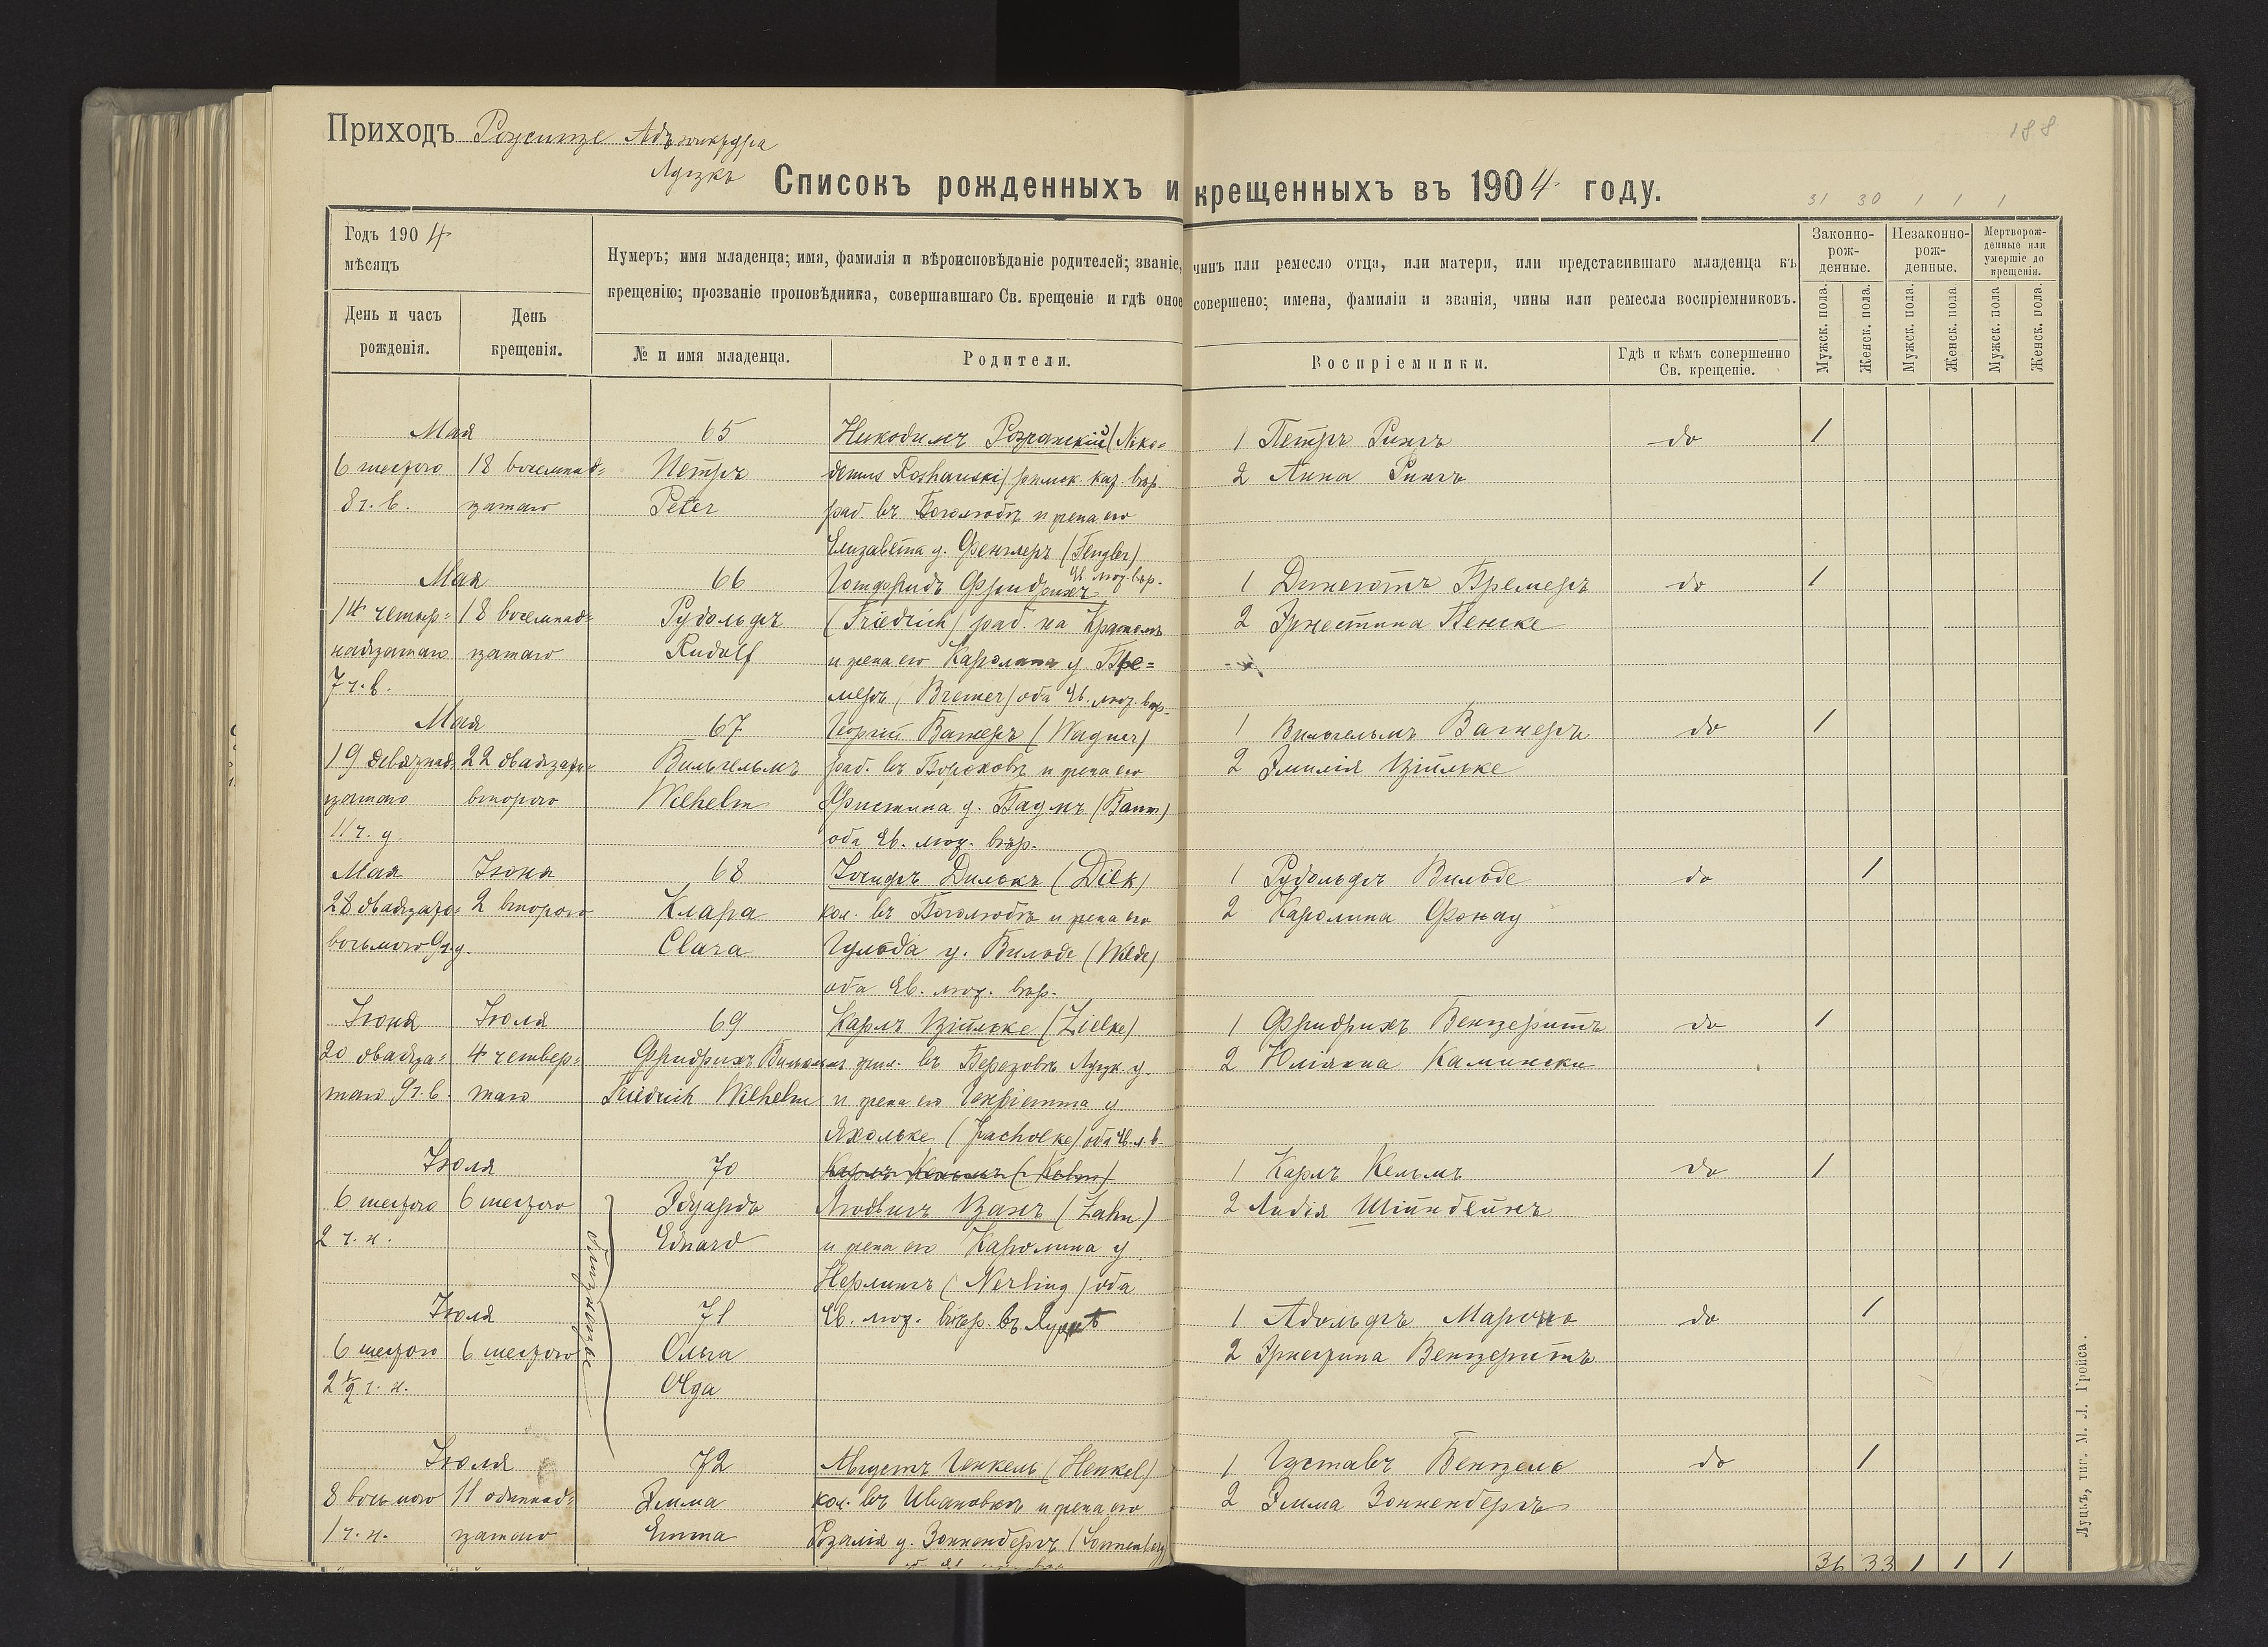 Приходъ Рожище Адъюнктура
Луцкъ
188
Списокъ рожденныхъ и крещенныхъ въ 1904 году.
31 30 1 1 1
Годъ 1904
мѣсяцъ
День и часъ рожденія.
День крещенія.
Нумеръ; имя младенца; имя, фамилія и вѣроисповѣданіе родителей; званіе, чинъ или ремесло отца, или матери, или представившаго младенца къ
крещенію; прозваніе проповѣдника, совершавшаго Св. крещеніе и гдѣ оное совершено; имена, фамиліи и званія, чины или ремесла воспріемниковъ.
№ и имя младенца.
Родители.
Воспріемники.
Гдѣ и кѣмъ совершенно
Св. крещеніе.
Законно-
рож-
денные.
Незаконно-
рож-
денные.
Мертворож-
денные или
умершіе до
крещенія.
Мужск. пола.
Женск. пола.
Мужск. пола.
Женск. пола.
Мужск. пола
Женск. пола.
Мая 65 Никодимъ Рожанскій (Niko= 1 Петръ Рингъ do 1
6 шестого 18 восемнад= Петръ demus Roshanski) римск. кат. вѣр. 2 Анна Рингъ
8 ч. в. цатаго Peter раб. въ Боголюбѣ и жена его
Елизавета у. Фенглеръ (Fengler)
Мая 66 Готфридъ Фридрихъ Ев. лют. вѣр. 1 Бремеръ do 1
14 четыр= 18 восемнад= Рудольфъ (Friedrich) раб. на 2 Эрнестина Пенске
надцатаго цатаго Rudolf и жена его Каролина у Бре=
7 ч. в. меръ (Bremer) оба Ев. лют. вѣр.
Мая 67 Георгій Вагнеръ (Wagner) 1 Вильгельмъ Вагнеръ do 1
19 девятнад= 22 двадцать Вильгельмъ раб. въ и жена его 2 Эмилія Цільке
цатаго второго Wilhelm Христина у. Баумъ (Baum)
11 ч. у. оба Ев. лют. вѣр.
Мая Іюня 68 Іосифъ Дилькъ (Dilk) 1 Рудольфъ Вильде do 1
28 двадцать 2 второго Клара кол. въ Боголюбѣ и жена его 2 Каролина Фонау
восьмого 9 ч. у. Clara Гульда у. Вильде (Wilde)
оба Ев. лют. вѣр.
Іюня Іюля 69 Карлъ Цільке (Zielke) 1 Фридрихъ Венцеритъ do 1
20 двадца= 4 четвер= Фридрихъ Вильгельмъ жит. въ Березовѣ Луцк. у. 2 Юліянна Камински
таго 9 ч. в. таго Friedrich Wilhelm и жена его Генріетта у
Яхольке (Jacholke) оба Ев. л. в.
Іюля 70 Карлъ Кельмъ (Kelm) 1 Карлъ Кельмъ do 1
6 шестого 6 шестого Эдуардъ Людвигъ Цанъ (Zahn) 2 Лидія Штинбейнъ
2 ч. н. Eduard и жена его Каролина у
Нерлингъ (Nerling) оба
близнецы
Іюля 71 Ев. лют. вѣр. въ Луцкѣ 1 Адольфъ do 1
6 шестого 6 шестого Ольга 2 Эрнестина Венцеритъ
2 1/2 ч. н. Olga
Іюля 72 Августъ Генкель (Henkel) 1 Густавъ Венцель do 1
8 восьмого 11 одиннад= Эмма кол. въ Ивановкѣ и жена его 2 Эмма Зонненбергъ
1 ч. н. цатаго Emma Розалія у. Зонненбергъ (Sonnenberg)
36 33 1 1 1
Луцкъ, тип. М. Л. Гройса.